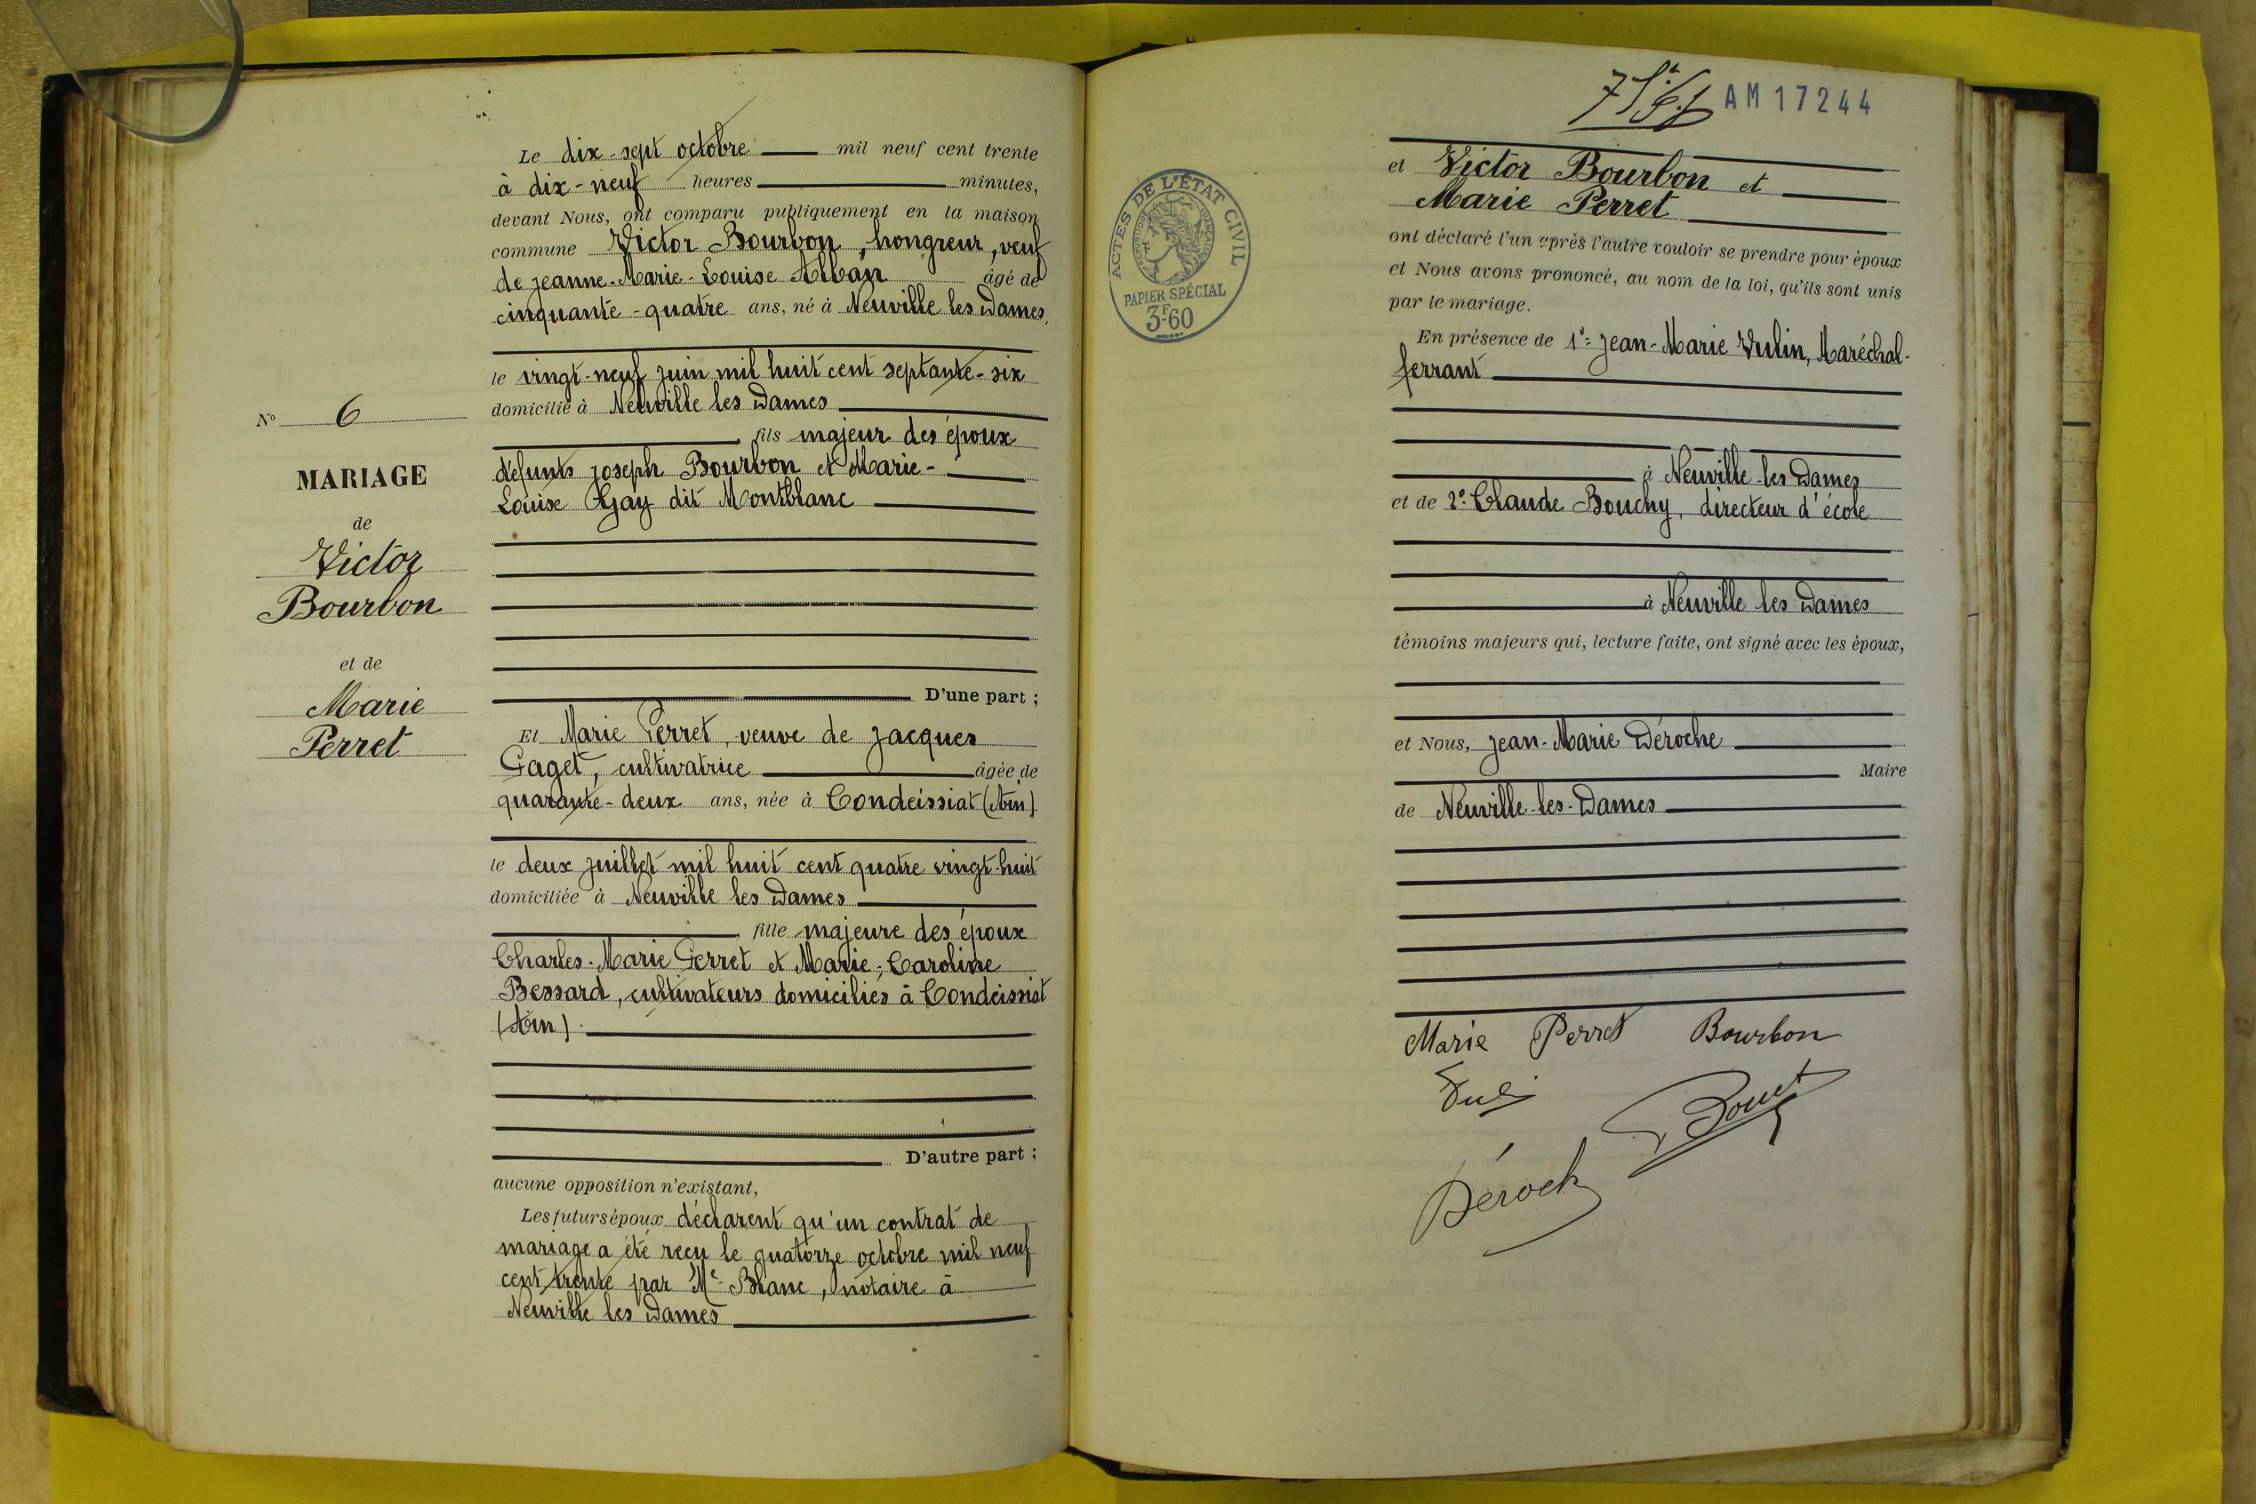 Le dix-sept octobre mil neuf cent trente
à dix-neuf heures minutes,
devant Nous, ont comparu publiquement en la maison
commune Victor Bourbon, hongreur, veuf
de Jeanne-Marie-Louise Alban âgé de
cinquante-quatre ans, né à Neuville les Dames,
le vingt-neuf juin mil huit cent septante-six
domicilié à Neuville les Dames
fils majeur des époux
défunts Joseph Bourbon et Marie-
Louise Gay dit Montblanc
D'une part ;
Et Marie Perret, veuve de Jacques
Gaget, cultivatrice âgée de
quarante-deux ans, née à Condeissiat (Ain)
le deux juillet mil huit cent quatre vingt-huit
domiciliée à Neuville les Dames
, fille majeure des époux
Charles-Marie Perret et Marie-Caroline
Bessard, cultivateurs domiciliés à Condeissiat
(Ain).
D'autre part ;
aucune opposition n'existant,
Les futurs époux déclarent qu'un contrat de
mariage a été reçu le quatorze octobre mil neuf
cent trente par Me Blanc, notaire à
Neuville les Dames
No 6
MARIAGE
de
Victor
Bourbon
et de
Marie
Perret
AM17244
ACTES DE L'ÉTAT CIVIL
RÉPUBLIQUE FRANÇAISE
PAPIER SPÉCIAL
3F60
et Victor Bourbon et
Marie Perret
ont déclaré l'un après l'autre vouloir se prendre pour époux
et Nous avons prononcé, au nom de la loi, qu'ils sont unis
par le mariage.
En présence de 1º= Jean-Marie Vulin, Maréchal-
ferrant
à Neuville-les-Dames
et de 2º- Claude Bouchy, directeur d'école
à Neuville les Dames
témoins majeurs qui, lecture faite, ont signé avec les époux,
et Nous, Jean-Marie Déroche
Maire
de Neuville-les-Dames
Marie Perret Bourbon